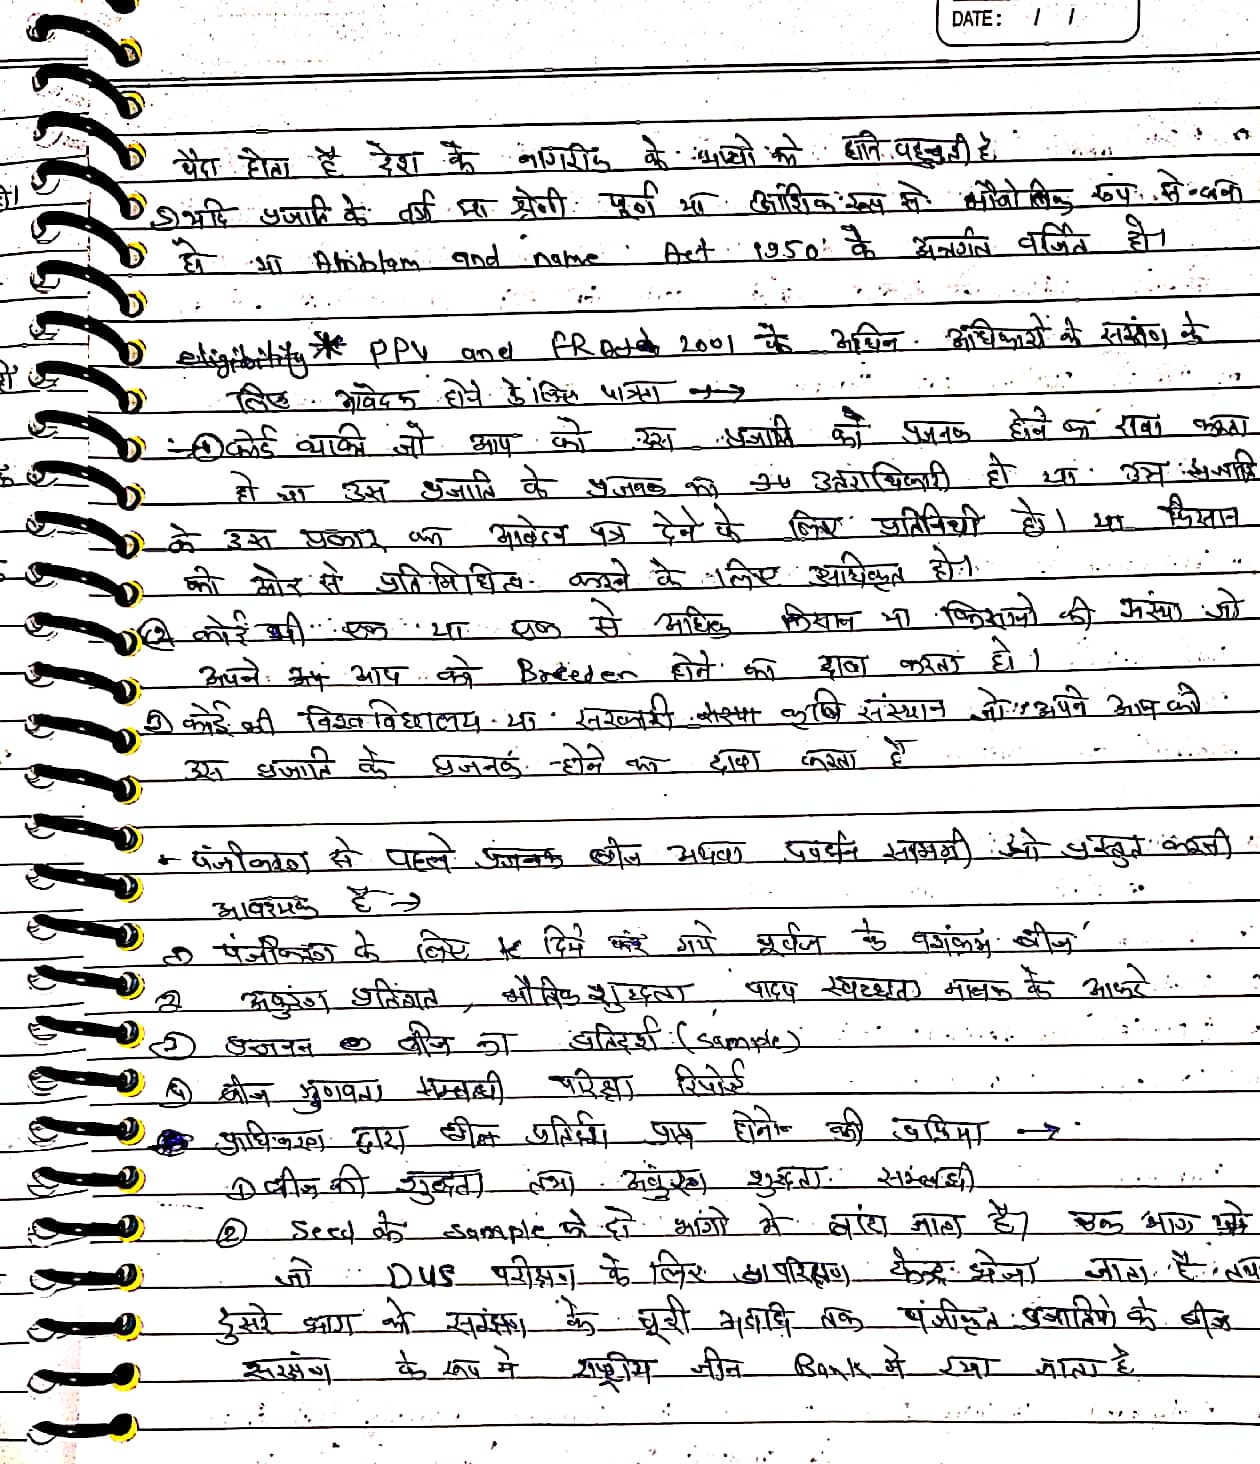 DATE: / /
पैदा होता है देश के नागरीक के को हानि पहुचती है
5) यदि प्रजाति के वर्ग या श्रेणी पूर्ण या आंशिक रूप से भौगोलिक रूप से बनी
हो या Amiblam and name Act 1950 के अन्तर्गत वर्जित हो।
eligibility * PPV and FR Act 2001 के अधिन अधिकारों के सरंक्षण के
लिए आवेदक होने के लिए पात्रता →
① कोई व्यक्ति जो आप को उस प्रजाति को प्रजनक होने का दावा करता
हो या उस प्रजाति के प्रजनक का उतराधिकारी हो या उस प्रजाति
के उस प्रकार का आवेदन पत्र देने के लिए प्रतिनिधी हो। या किसान
की ओर से प्रतिनिधित्व करने के लिए अधिकृत हो।
② कोई भी एक या एक से अधिक किसान या किसानो की संस्था जो
अपने आप को Breeder होने का दावा करता हो।
③ कोई भी विश्वविद्यालय या सरकारी संस्था कृषि संस्थान जो अपने आप को
उस प्रजाति के प्रजनक होने का दावा करता है
* पंजीकरण से पहले प्रजनक बीज अथवा प्रवर्धन सामग्री जो प्रस्तुत करनी
आवश्यक है →
① पंजीकरण के लिए दिये गये पूर्वज के वशंक्रम बीज
2 अकुंरण प्रतिशत, भौतिक शुद्धता पादप स्वच्छता मानक के आकडे
③ प्रजनन बीज का प्रतिदर्श (Sample)
④ बीज गुणवता सम्बन्धी परिक्षा रिपोर्ट
प्राधिकरण द्वारा बीज प्रतिदर्श प्राप्त होने की प्रक्रिया →
① बीज की शुद्धता तथा अकुंरण शुद्धता सम्बन्धी
② Seed के Sample को दो भागो मे बांटा जाता है। एक भाग को
जो DUS परीक्षण के लिए परिक्षण केन्द्र भेजा जाता है तथा
दुसरे भाग को सरंक्षण के पूरी अवधि तक पंजीकृत प्रजातियो के बीज
सरक्षंण के रूप मे राष्ट्रीय जीन Bank मे रखा जाता है